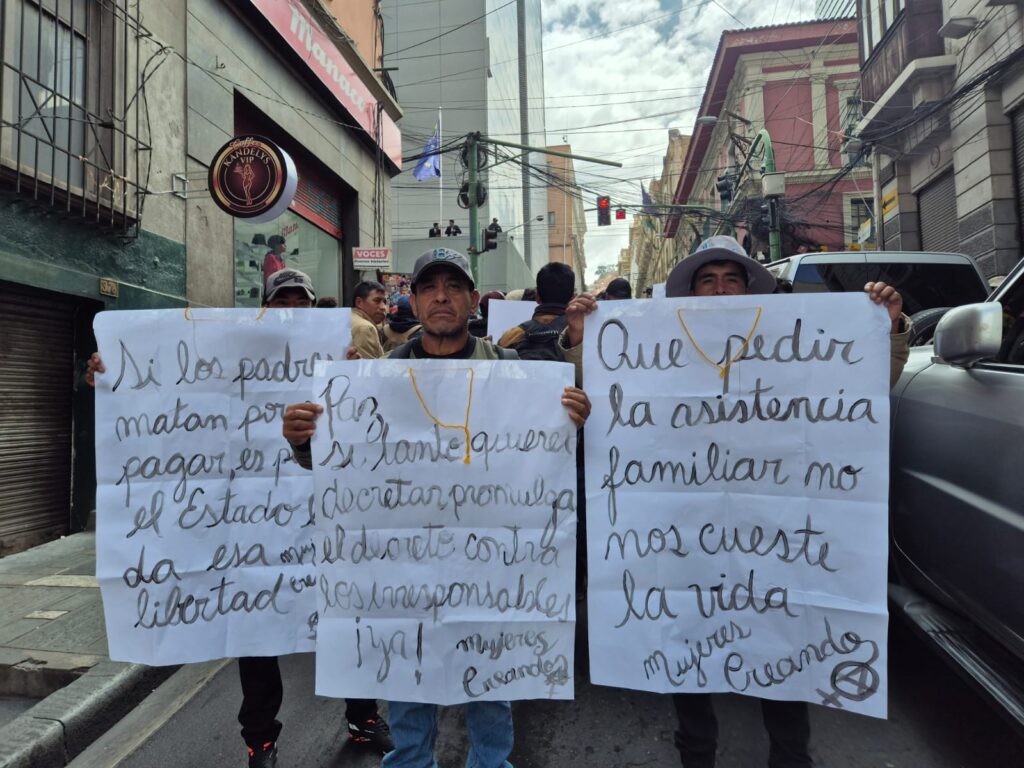 Manaco
Coffee
KANDELYS
VIP
VOCES
Si los padres
matan por
pagar, es p
el Estado
da esa
libertad
Paz,
si, tanto quieres
decretar promulga
el decreto contra
los irresponsables
¡ya!
Mujeres
Creando
Que pedir
la asistencia
familiar no
nos cueste
la vida
Mujeres
Creando